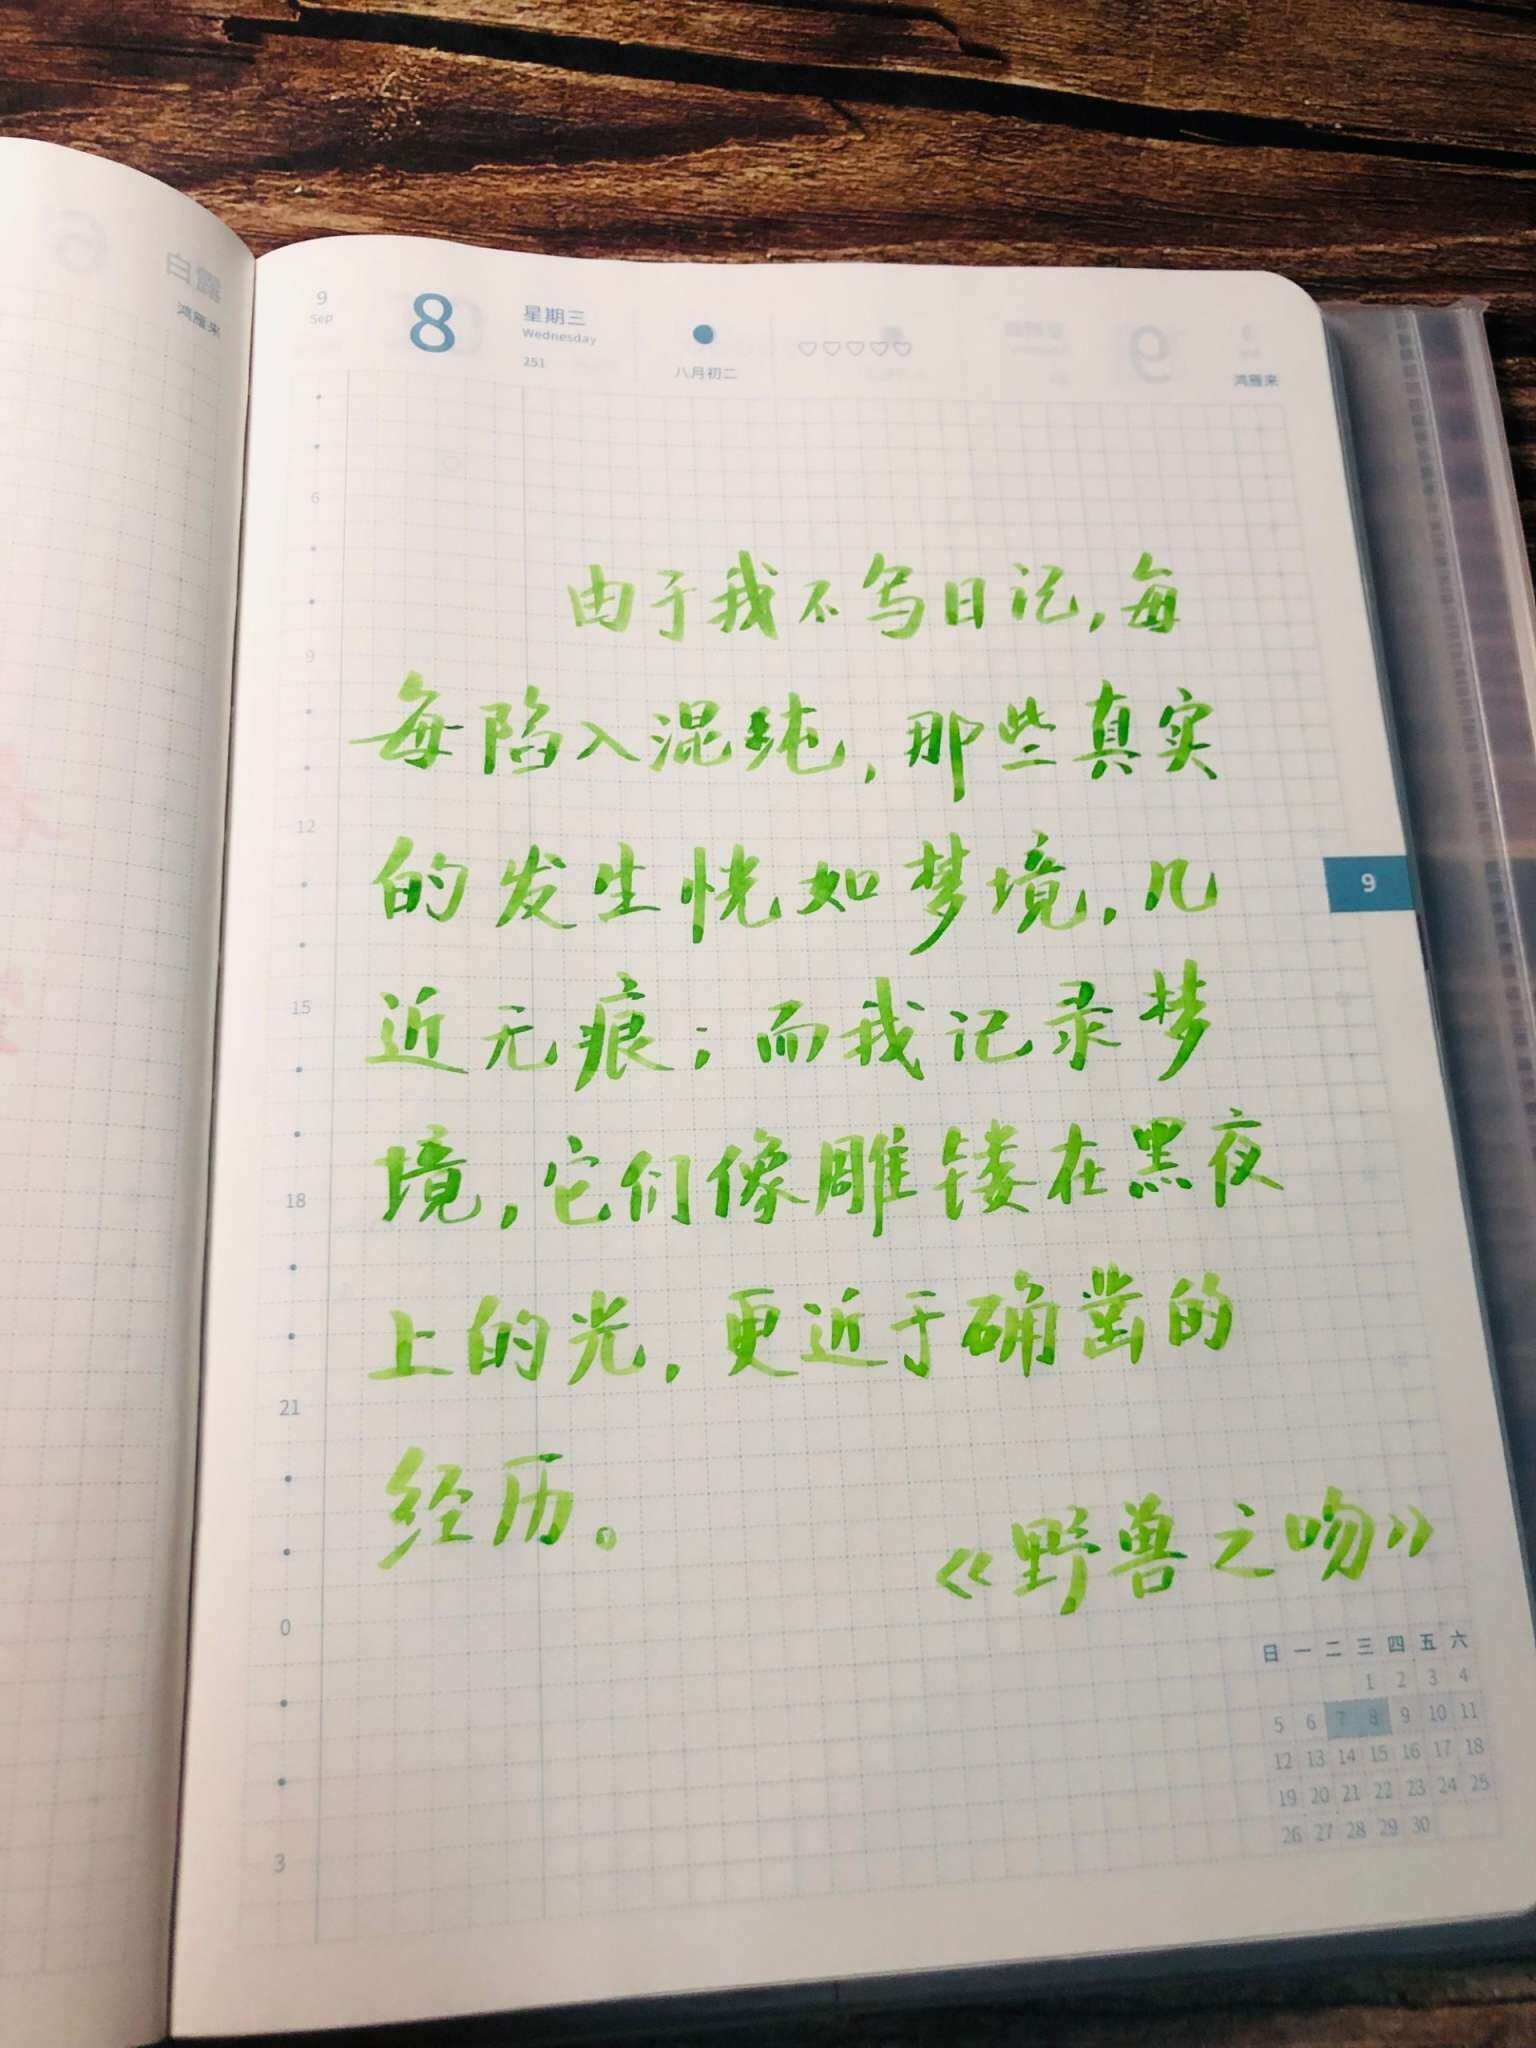 白露
鸿雁来
9
Sep
8
星期三
Wednesday
251
八月初二
鸿雁来
6
9
12
15
18
21
0
3
由于我不写日记,每
每陷入混沌,那些真实
的发生恍如梦境,几
近无痕;而我记录梦
境,它们像雕镂在黑夜
上的光,更近于确凿的
经历。
《野兽之吻》
9
日 一 二 三 四 五 六
1 2 3 4
5 6 7 8 9 10 11
12 13 14 15 16 17 18
19 20 21 22 23 24 25
26 27 28 29 30